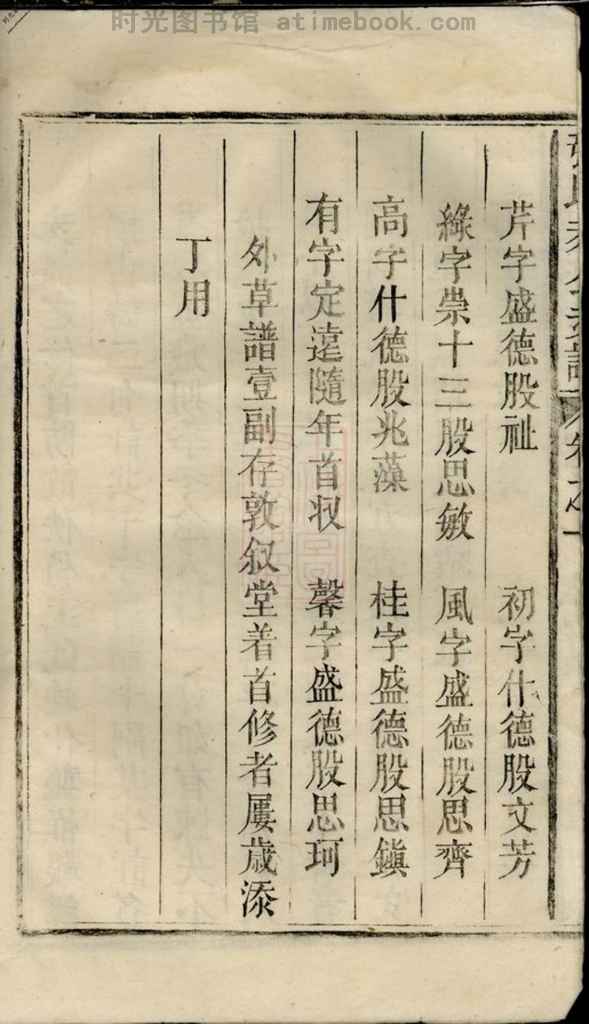 时光图书馆 atimebook.com
芹字盛德股祉 初字什德股文芳
綠字崇十三股思敏 風字盛德股思齊
高字什德股兆藻 桂字盛德股思鎮
有字定遠隨年首収 馨字盛德股思珂
外草譜壹副存敦叙堂着首修者屢歲添
丁用